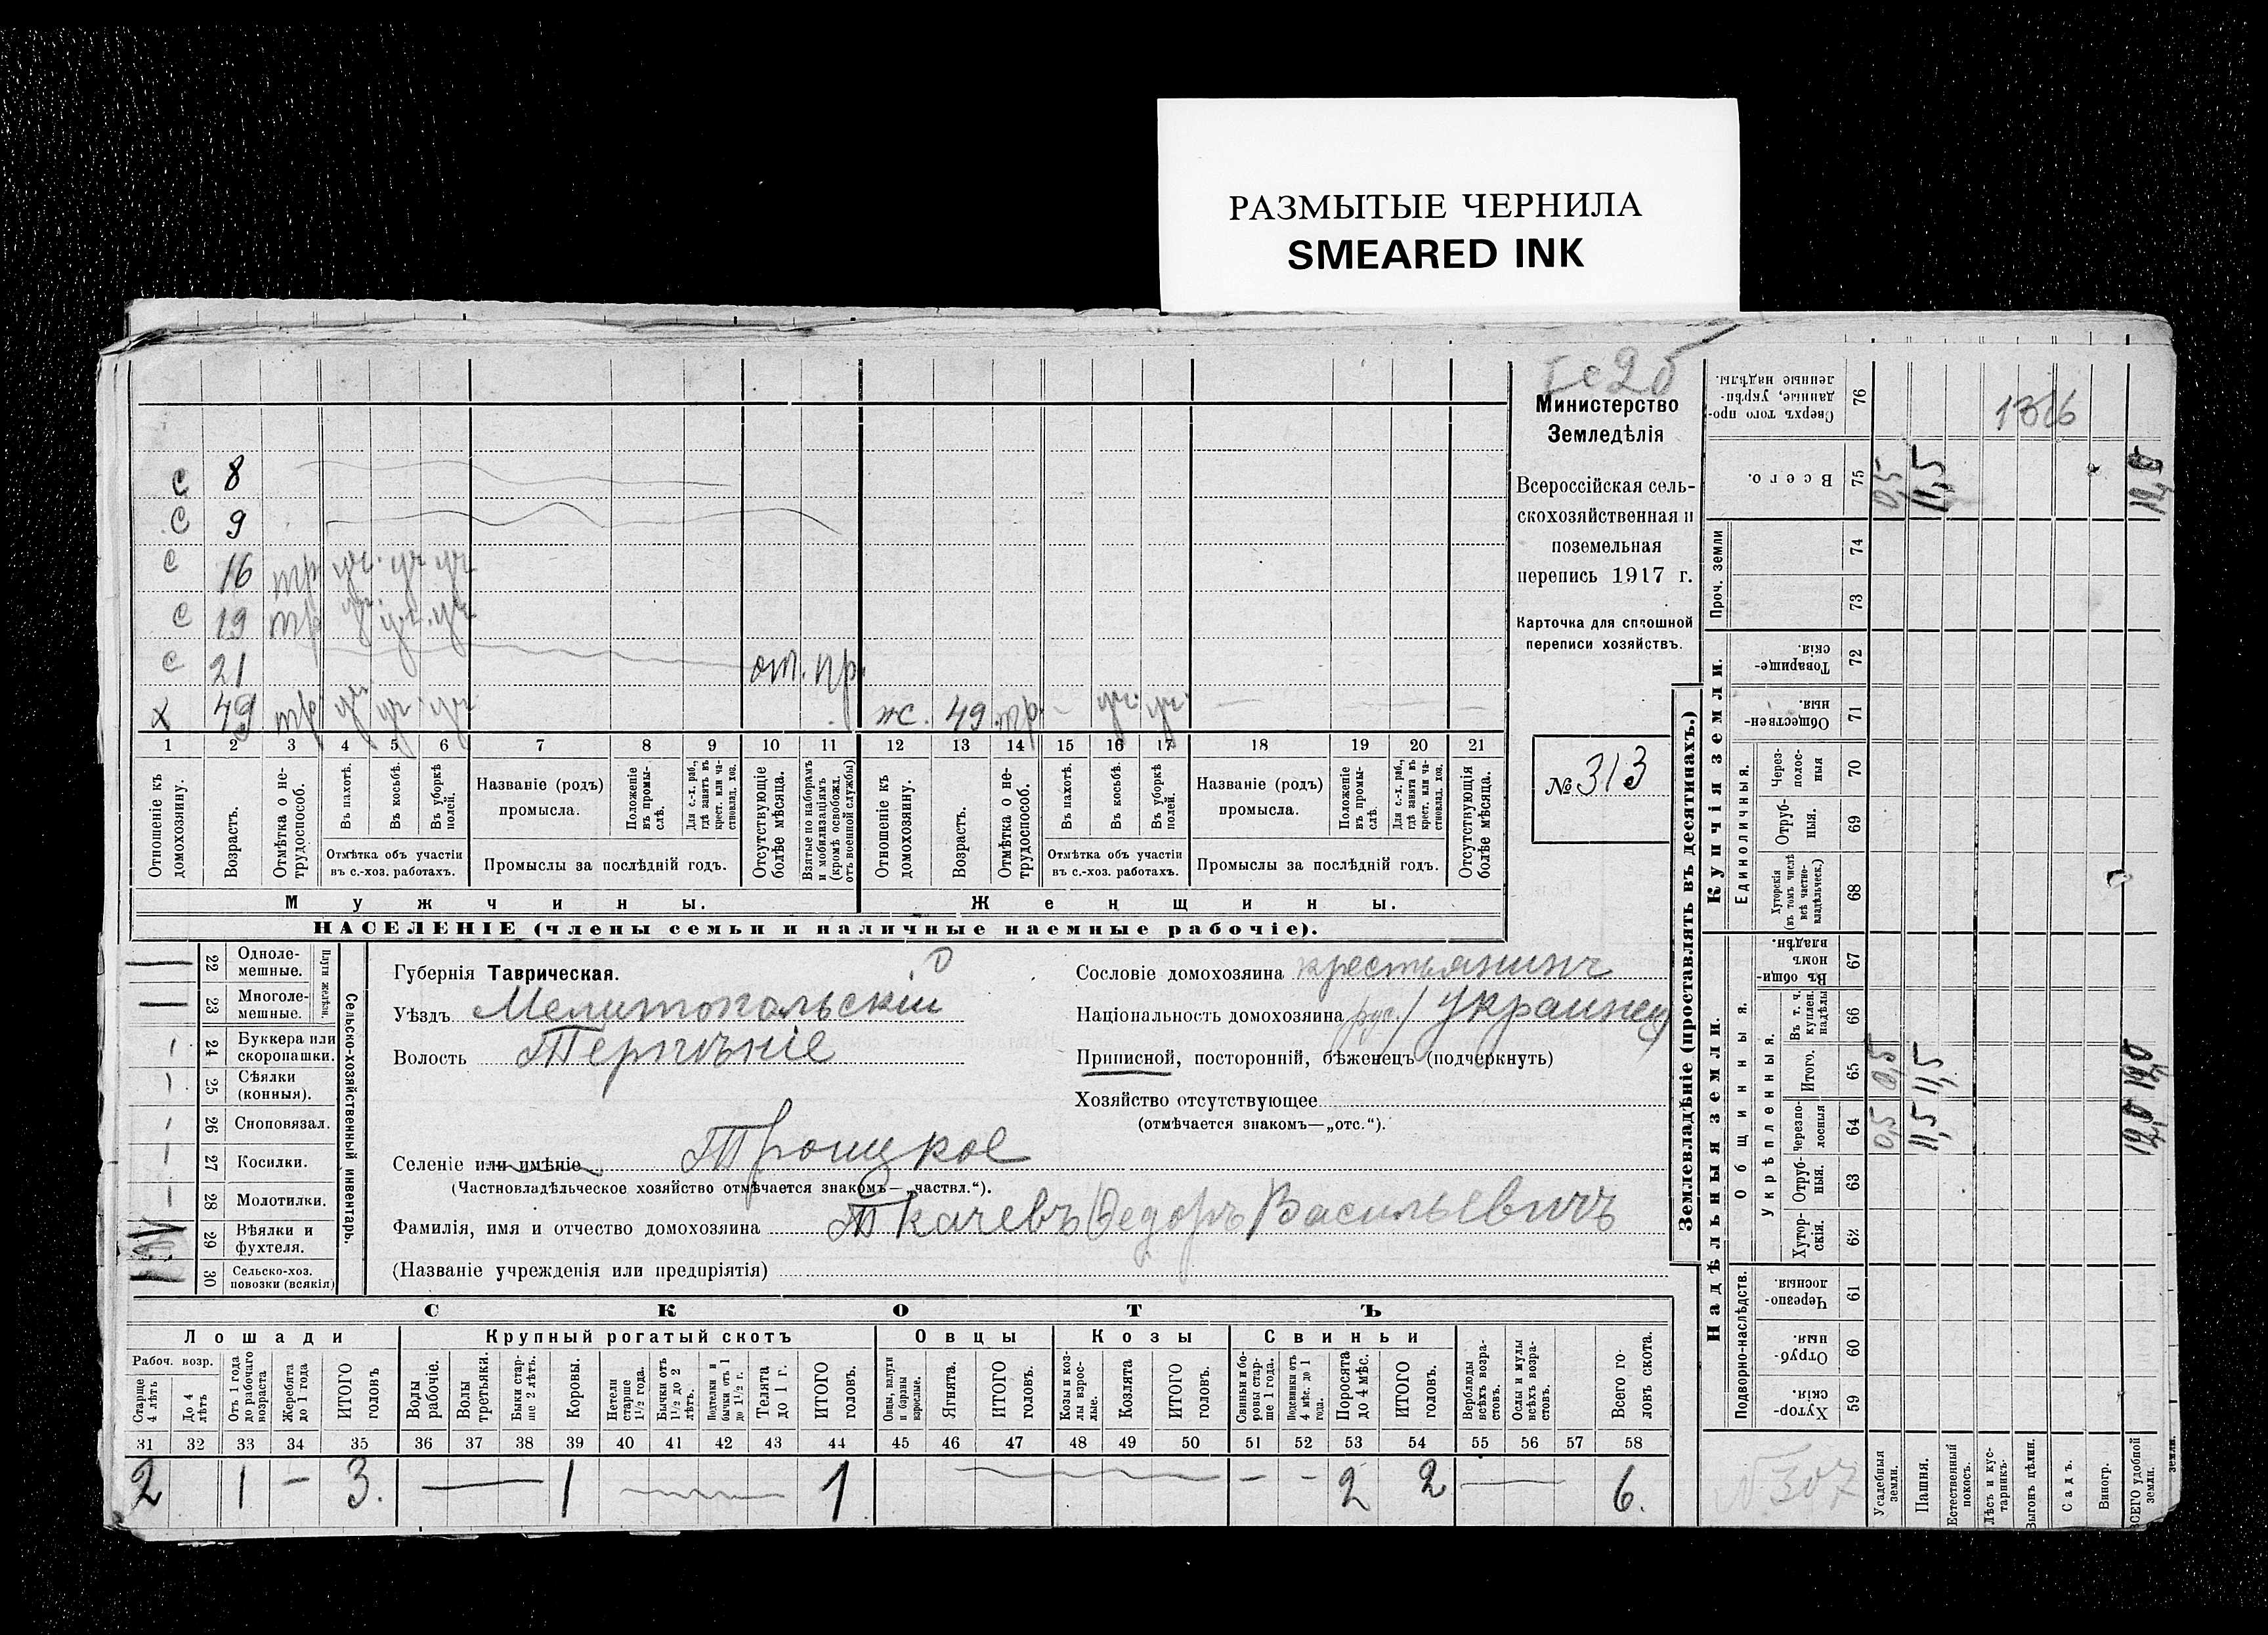 РАЗМЫТЫЕ ЧЕРНИЛА
SMEARED INK
Министерство
Земледѣлія
Всероссійская сель-
скохозяйственная и
поземельная
перепись 1917 г.
Карточка для сплошной
переписи хозяйствъ.
№ 313
с 8
с 9
с 16 тр уч. уч уч
с 19 тр уч. уч. уч.
с 21 от. пр.
х 49 тр уч уч уч ж. 49 тр. уч. уч.
1 2 3 4 5 6 7 8 9 10 11 12 13 14 15 16 17 18 19 20 21
Отношеніе къ домохозяину.
Возрастъ.
Отмѣтка о не-трудоспособ.
Въ пахотѣ.
Въ косьбѣ.
Въ уборкѣ полей.
Отмѣтка объ участіи
въ с.-хоз. работахъ.
Названіе (родъ)
промысла.
Положеніе въ промы-слѣ.
Для с.-х. раб., гдѣ занятъ въ крест. или ча-стновлад. хоз.
Промыслы за послѣдній годъ.
Отсутствующіе болѣе мѣсяца.
Взятые по наборамъ и мобилизаціямъ (кромѣ освобожд. отъ военной службы)
Отношеніе къ домохозяину.
Возрастъ.
Отмѣтка о не-трудоспособ.
Въ пахотѣ.
Въ косьбѣ.
Въ уборкѣ полей.
Отмѣтка объ участіи
въ с.-хоз. работахъ.
Названіе (родъ)
промысла.
Положеніе въ промы-слѣ.
Для с.-х. раб., гдѣ занята въ крест. или ча-стновлад. хоз.
Промыслы за послѣдній годъ.
Отсутствующія болѣе мѣсяца.
Мужчины.
Женщины.
НАСЕЛЕНІЕ (члены семьи и наличные наемные рабочіе).
Сельско-хозяйственный инвентарь.
Плуги желѣзн.
22 Одноле-мешные.
23 Многоле-мешные.
24 Буккера или скоропашки.
25 Сѣялки (конныя).
26 Сноповязал.
27 Косилки.
28 Молотилки.
29 Вѣялки и фухтеля.
30 Сельско-хоз. повозки (всякія)
Губернія Таврическая.
Уѣздъ Мелитопольскій
Волость Терпѣніе
Селеніе или имѣніе Троицкое
(Частновладѣльческое хозяйство отмѣчается знакомъ—„частвл.“).
Фамилія, имя и отчество домохозяина Ткачевъ Ѳедоръ Васильевичъ
(Названіе учрежденія или предпріятія)
Сословіе домохозяина крестьянинъ
Національность домохозяина рус./ украинец
Приписной, посторонній, бѣженецъ (подчеркнуть)
Хозяйство отсутствующее
(отмѣчается знакомъ—„отс.“).
СКОТЪ
Лошади
Крупный рогатый скотъ
Овцы
Козы
Свиньи
Рабоч. возр.
Старше 4 лѣтъ
До 4 лѣтъ
Отъ 1 года до рабочаго возраста
Жеребята до 1 года
ИТОГО головъ
Волы рабочіе.
Волы третьяки.
Быки стар-ше 2 лѣтъ.
Коровы.
Нетели старше 1 1/2 года.
Бычки отъ 1 1/2 до 2 лѣтъ.
Подтелки и бычки отъ 1 до 1 1/2 г.
Телята до 1 г.
ИТОГО головъ.
Овцы, валухи и бараны взрослые.
Ягнята.
ИТОГО головъ.
Козы и коз-лы взрос-лые.
Козлята
ИТОГО головъ.
Свиньи и бо-ровы стар-ше 1 года.
Подсвинки отъ 4 мѣс. до 1 года.
Поросята до 4 мѣс.
ИТОГО головъ.
Верблюды всѣхъ возра-стовъ.
Ослы и мулы всѣхъ возра-стовъ.
Всего го-ловъ скота.
31 32 33 34 35 36 37 38 39 40 41 42 43 44 45 46 47 48 49 50 51 52 53 54 55 56 57 58
2 1 — 3. — 1 1 — — 2 2 — 6.
Землевладѣніе (проставлять въ десятинахъ.)
Надѣльныя земли.
Купчія земли.
Проч. земли
Подворно-наслѣдств.
Общинныя.
Укрѣпленныя.
Единоличныя.
76 Сверхъ того про-данные, укрѣп-ленные надѣлы.
75 Всего.
74
73
72 Товарище-скія.
71 Обществен-ныя.
70 Через-полос-ныя
69 Отруб-ныя.
68 Хуторскія (въ томъ числѣ всѣ частно-владѣльческ.)
67 Въ общин-номъ владѣн.
66 Въ т. ч. куплен. надѣлы
65 Итого.
64 Черезпо-лосныя
63 Отруб-ныя.
62 Хутор-скія.
61 Черезпо-лосныя
60 Отруб-ныя.
59 Хутор-скія.
Усадебныя земли.
Пашня.
Естественный покосъ.
Лѣсъ и кус-тарникъ.
Выгонъ цѣлин.
Садъ.
Виногр.
ВСЕГО удобной земли.
0,5 11,5
0,5 11,5
0,5 11,5
№ 307